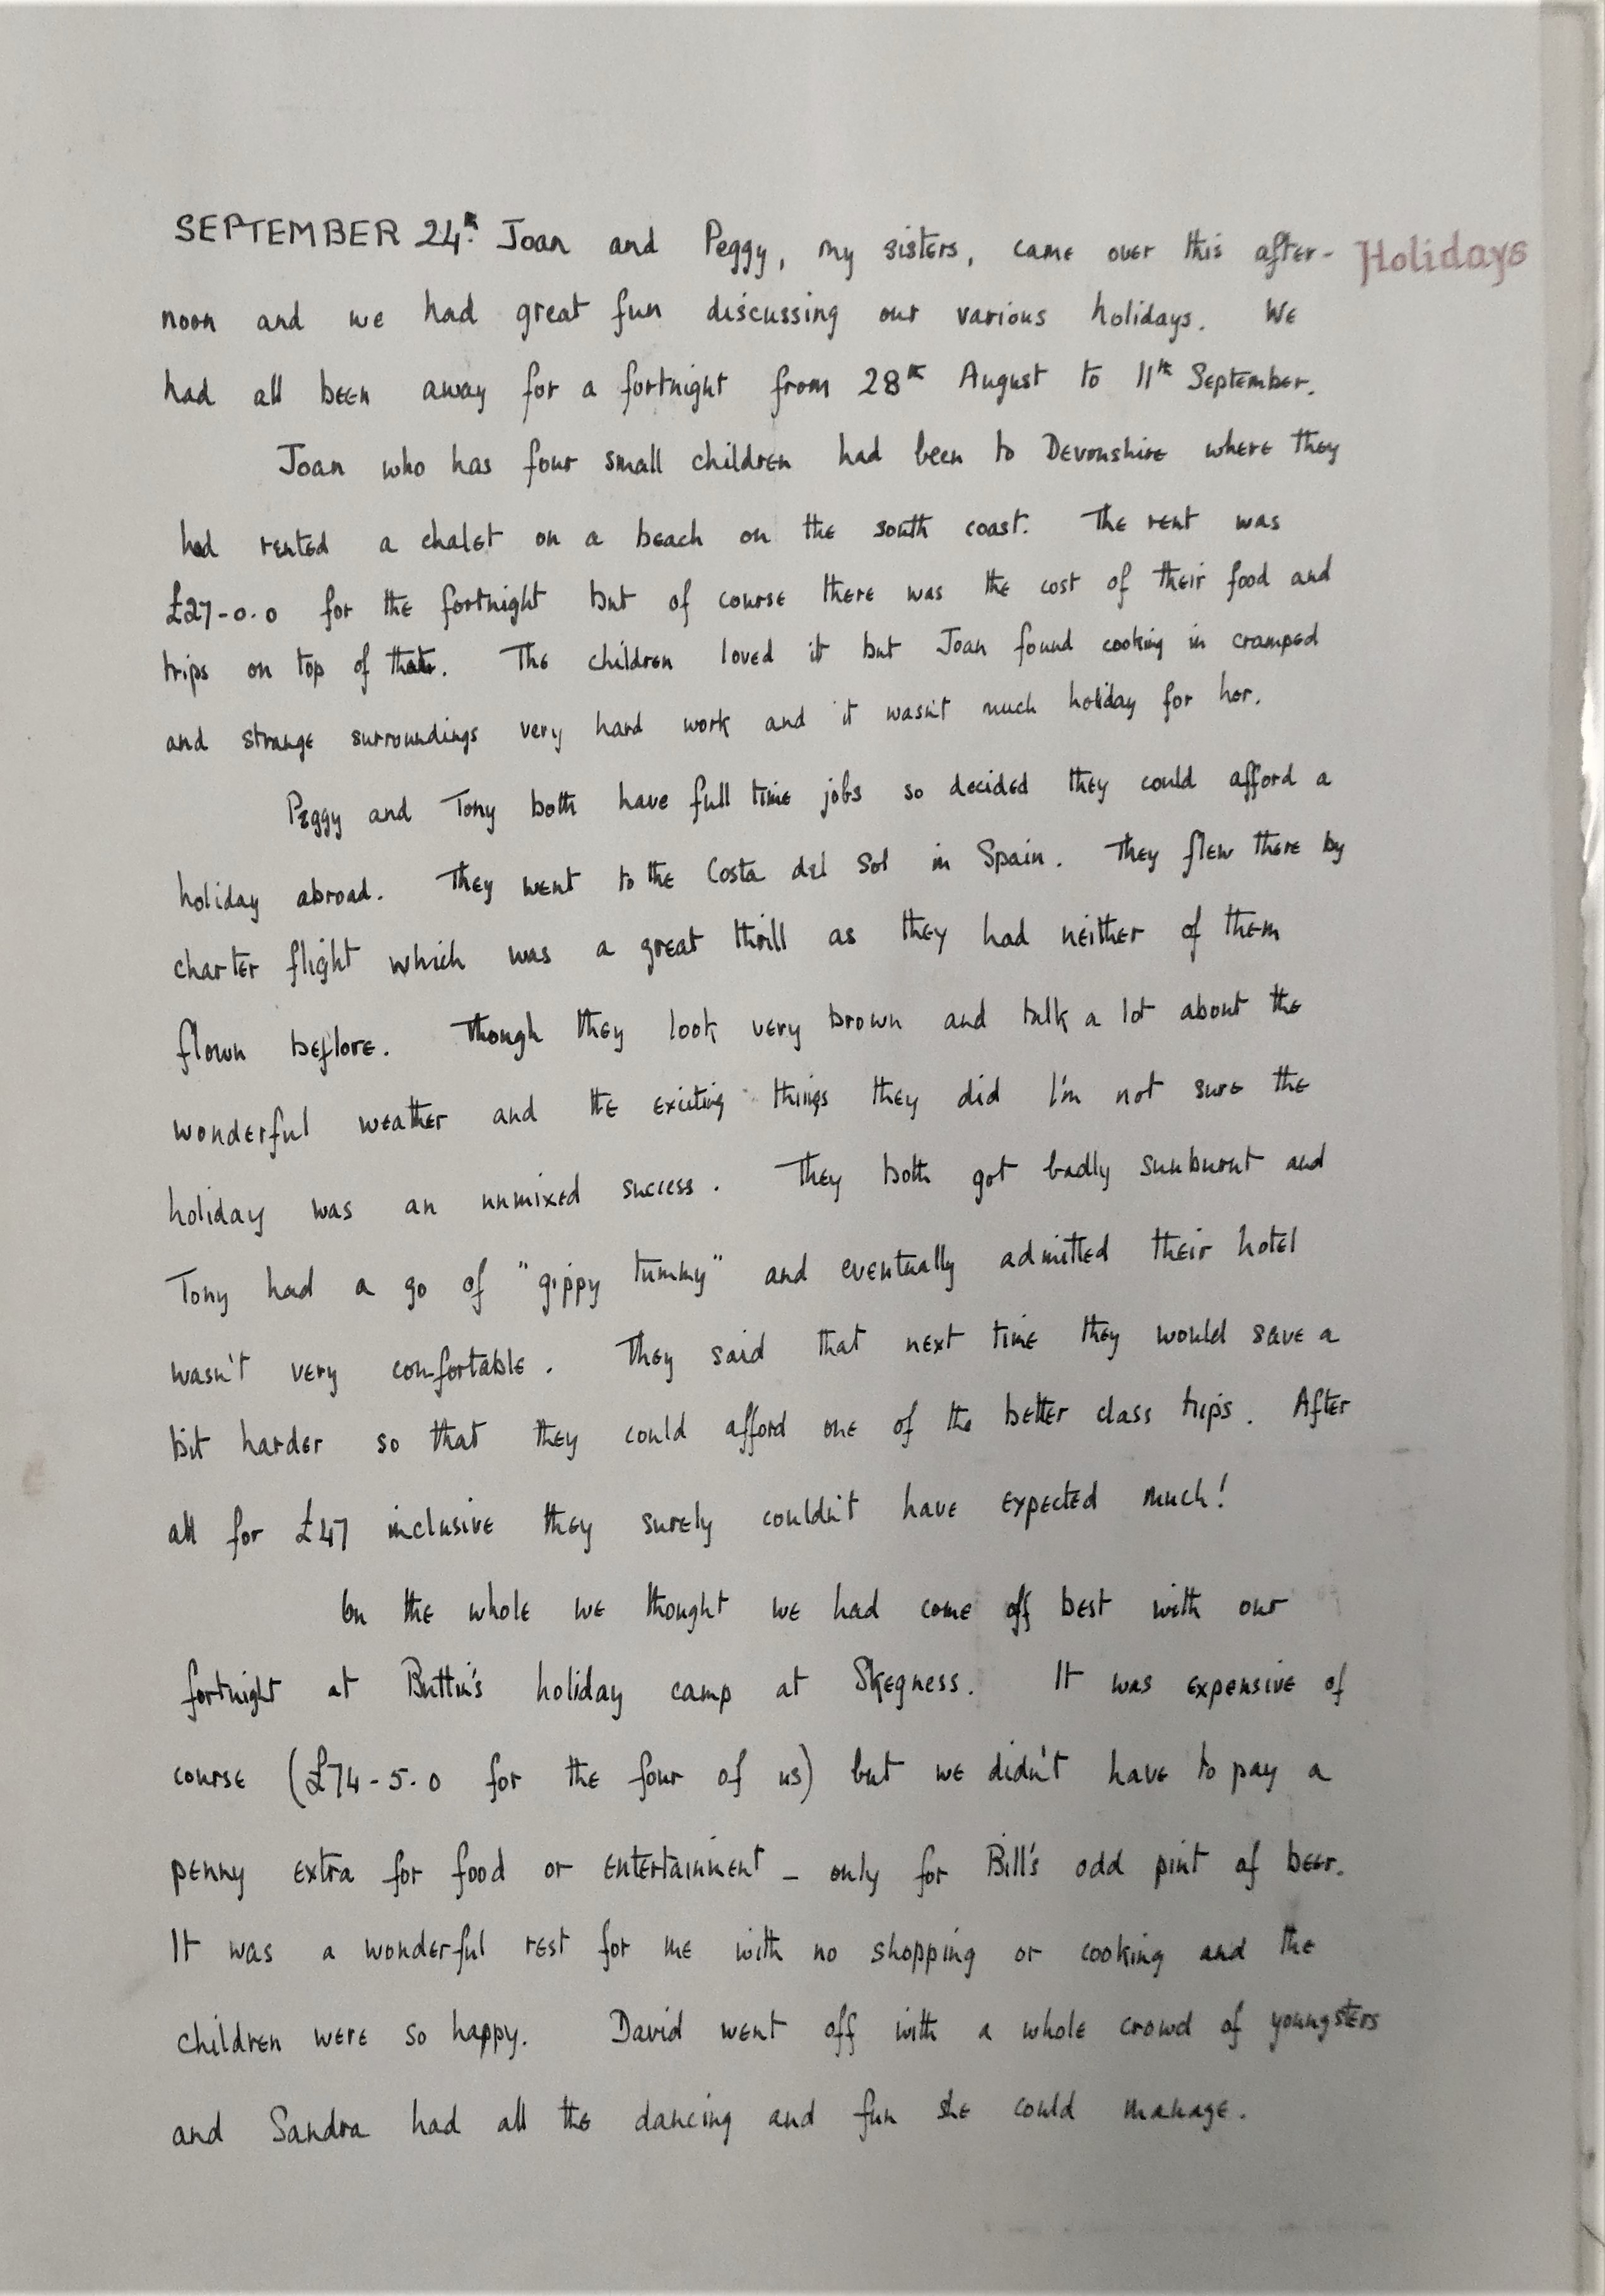 SEPTEMBER 24th. Joan and Peggy, my sisters, came over this after- Holidays
noon and we had great fun discussing our various holidays. We
had all been away for a fortnight from 28th August to 11th September.
Joan who has four small children had been to Devonshire where they
had rented a chalet on a beach on the south coast. The rent was
£27-0.0 for the fortnight but of course there was the cost of their food and
trips on top of that. The children loved it but Joan found cooking in cramped
and strange surroundings very hard work and it wasn't much holiday for her.
Peggy and Tony both have full time jobs so decided they could afford a
holiday abroad. They went to the Costa del Sol in Spain. They flew there by
charter flight which was a great thrill as they had neither of them
flown before. Though they look very brown and talk a lot about the
wonderful weather and the exciting things they did I'm not sure the
holiday was an unmixed success. They both got badly sunburnt and
Tony had a go of "gippy tummy" and eventually admitted their hotel
wasn't very comfortable. They said that next time they would save a
bit harder so that they could afford one of the better class trips. After
all for £47 inclusive they surely couldn't have expected much!
On the whole we thought we had come off best with our
fortnight at Buttin's holiday camp at Skegness. It was expensive of
course (£74-5.0 for the four of us) but we didn't have to pay a
penny extra for food or entertainment - only for Bill's odd pint of beer.
It was a wonderful rest for me with no shopping or cooking and the
children were so happy. David went off with a whole crowd of youngsters
and Sandra had all the dancing and fun she could manage.